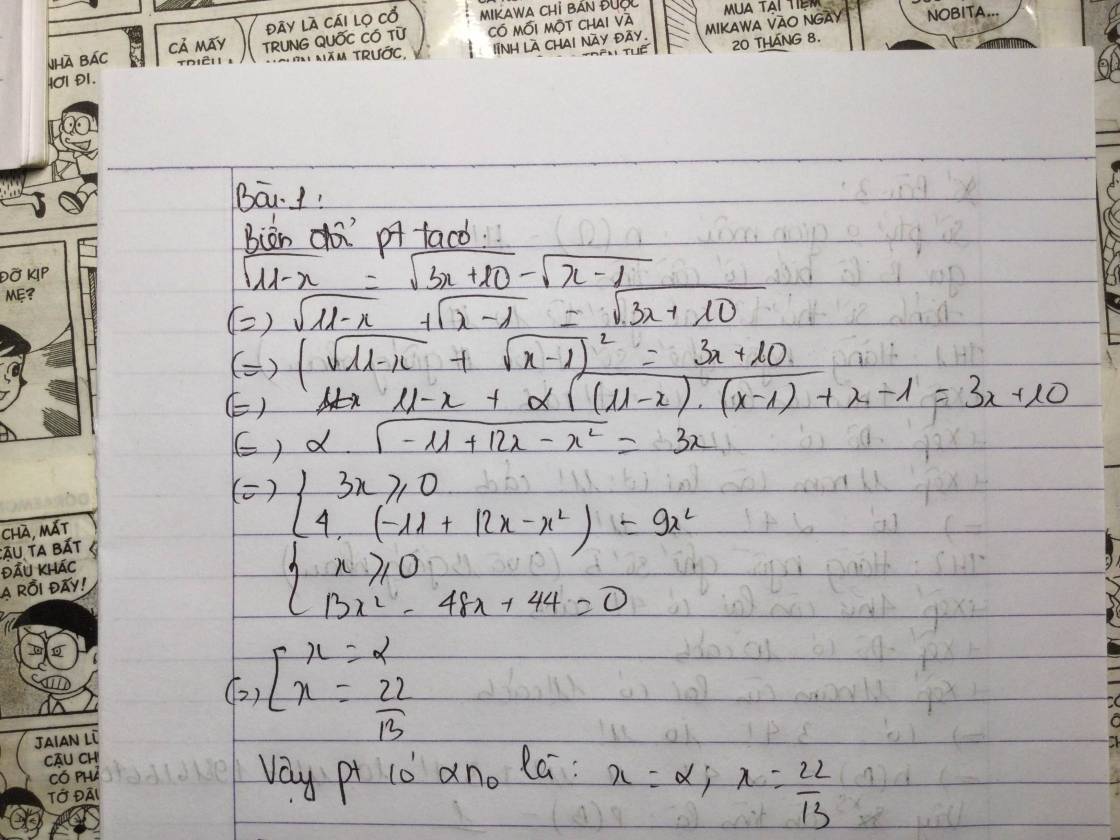 NHÀ BÁC
CẢ MẤY
ĐÂY LÀ CÁI LỌ CỔ
TRUNG QUỐC CÓ TỪ
NĂM TRƯỚC.
MIKAWA CHỈ BÁN ĐƯỢC
CÓ MỖI MỘT CHAI VÀ
CHAI NÀY ĐÂY.
MUA TẠI TIỆM
MIKAWA VÀO NGÀY
20 THÁNG 8.
NOBITA...
ĐỠ KỊP
MẸ?
CHÀ, MẤT
CẬU TA BẮT
ĐẦU KHÁC
RỒI ĐẤY!
JAIAN
CẬU
CÓ
Bài 1:
Biến đổi pt ta có:
√11-x = √3x+10 - √x-1
(=) √11-x + √x-1 = √3x+10
(=) (√11-x + √x-1)² = 3x+10
(=) 11-x + 2√(11-x).(x-1) + x-1 = 3x+10
(=) 2.√-11+12x-x² = 3x
(=) { 3x ≥ 0
4.(-11+12x-x²) = 9x²
{ x ≥ 0
13x² - 48x + 44 = 0
(=) [ x = 2
x = 22/13
Vậy pt có 2 no là: x = 2; x = 22/13